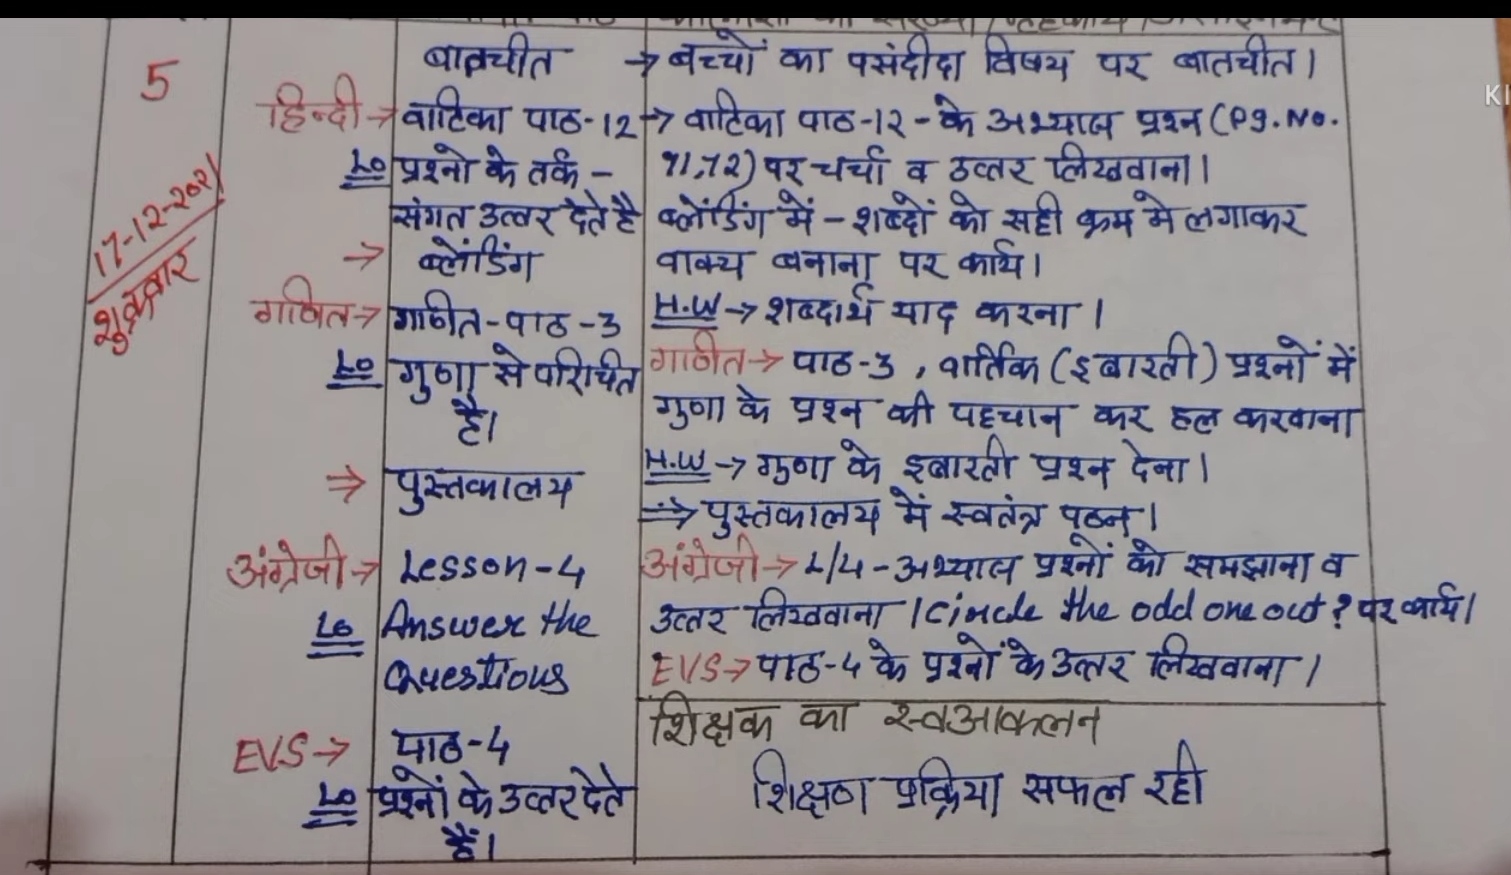 5
17-12-2021
शुक्रवार
बातचीत → बच्चों का पसंदीदा विषय पर बातचीत।
हिन्दी → वाटिका पाठ-12 → वाटिका पाठ-12 - के अभ्यास प्रश्न (Pg. No.
Lo प्रश्नो के तर्क - 71,72) पर चर्चा व उत्तर लिखवाना।
संगत उत्तर देते है ब्लेंडिंग में - शब्दों को सही क्रम मे लगाकर
→ ब्लेंडिंग वाक्य बनाना पर कार्य।
H.W → शब्दार्थ याद करना।
गणित → गणित-पाठ-3
Lo गुणा से परिचित है।
गणित → पाठ-3, वार्तिक (इबारती) प्रश्नों में
गुणा के प्रश्न की पहचान कर हल करवाना
H.W → गुणा के इबारती प्रश्न देना।
⇒ पुस्तकालय
⇒ पुस्तकालय में स्वतंत्र पठन।
अंग्रेजी → Lesson-4
Lo Answer the
Questions
अंग्रेजी → L/4 - अभ्यास प्रश्नों को समझाना व
उत्तर लिखवाना। Circle the odd one out? पर कार्य।
EVS → पाठ-4 के प्रश्नों के उत्तर लिखवाना।
EVS → पाठ-4
Lo प्रश्नों के उत्तर देते
हैं।
शिक्षक का स्वआकलन
शिक्षण प्रक्रिया सफल रही